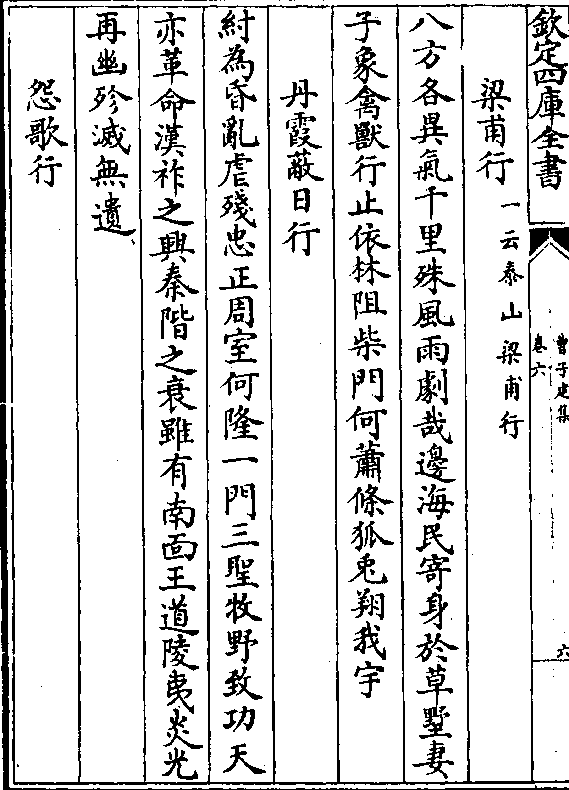 欽定四庫全書
曹子建集
卷六
六
梁甫行一云泰山梁甫行
八方各異氣千里殊風雨劇哉邊海民寄身於草墅妻
子象禽獸行止依林阻柴門何蕭條狐兎翔我宇
丹霞蔽日行
紂為昏亂虐殘忠正周室何隆一門三聖牧野致功天
亦革命漢祚之興秦階之衰雖有南面王道陵夷炎光
再幽殄滅無遺
怨歌行